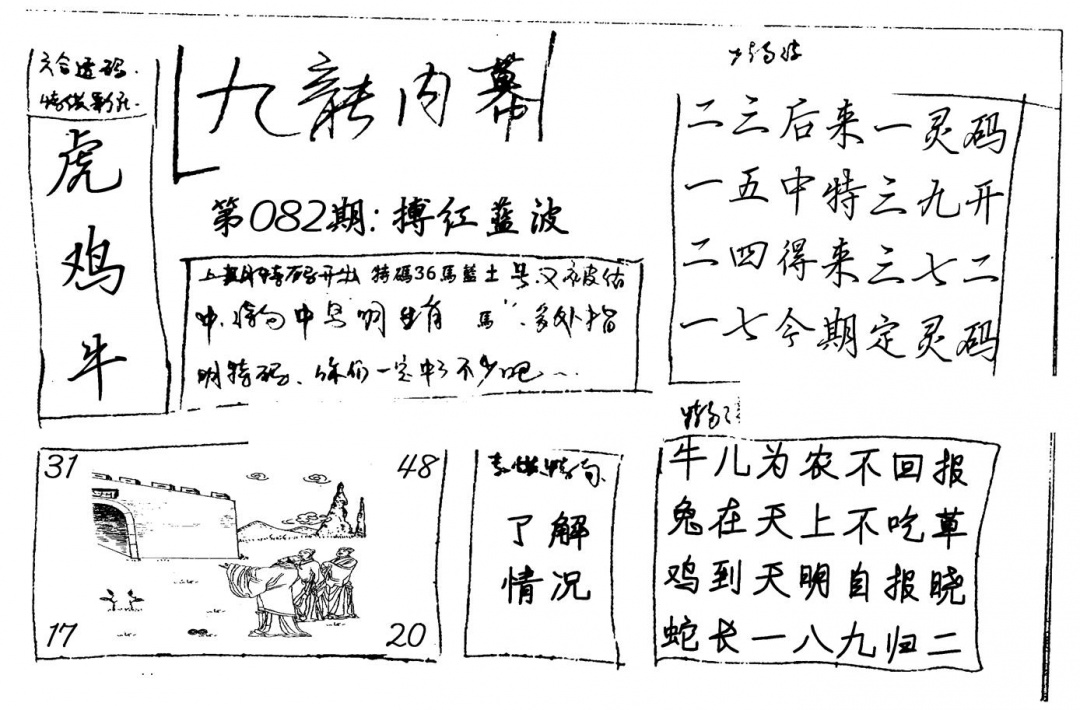 六合透码
虎
鸡
牛
九龍内幕
第082期:搏红蓝波
上期特码开出 特碼36馬藍土号又被估
中、中号明 馬 多处指
明特码、你们一定中了不少吧…
二三后来一灵码
一五中特三九开
二四得来三七二
一七今期定灵码
31
48
17
20
了解
情况
牛儿为农不回报
兔在天上不吃草
鸡到天明自报晓
蛇长一八九归二